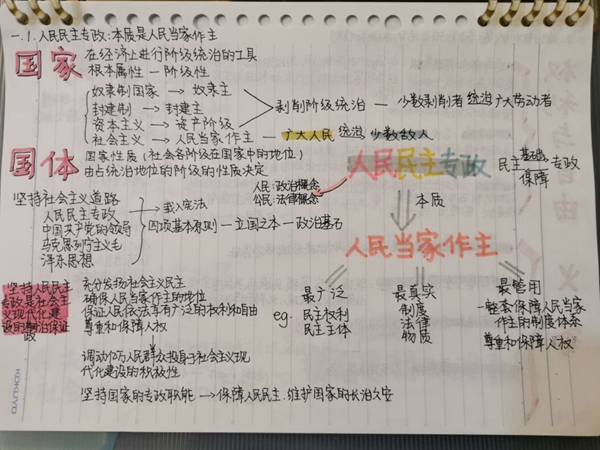 一.1.人民民主专政:本质是人民当家作主
国家
在经济上进行阶级统治的工具
根本属性—阶级性
奴隶制国家→奴隶主
封建制→封建主
资本主义→资产阶级
剥削阶级统治—少数剥削者统治广大劳动者
社会主义→人民当家作主—广大人民统治少数敌人
国体
国家性质(社会各阶级在国家中的地位)
由占统治地位的阶级的性质决定
人民民主专政
民主 基础 保障 专政
人民:政治概念
公民:法律概念
本质
坚持社会主义道路
人民民主专政
中国共产党的领导
马克思列宁主义毛
泽东思想
载入宪法
四项基本原则—立国之本—政治基石
人民当家作主
坚持人民民主
专政是社会主
义现代化建
设的政治保证
充分发扬社会主义民主
确保人民当家作主的地位
保证人民依法享有广泛的权利和自由
尊重和保障人权
调动亿万人民群众投身于社会主义现
代化建设的积极性
坚持国家的专政职能→保障人民民主.维护国家的长治久安
最广泛
eg. 民主权利
民主主体
最真实
制度
法律
物质
最管用
一整套保障人民当家
作主的制度体系
尊重和保障人权
KOKUYO